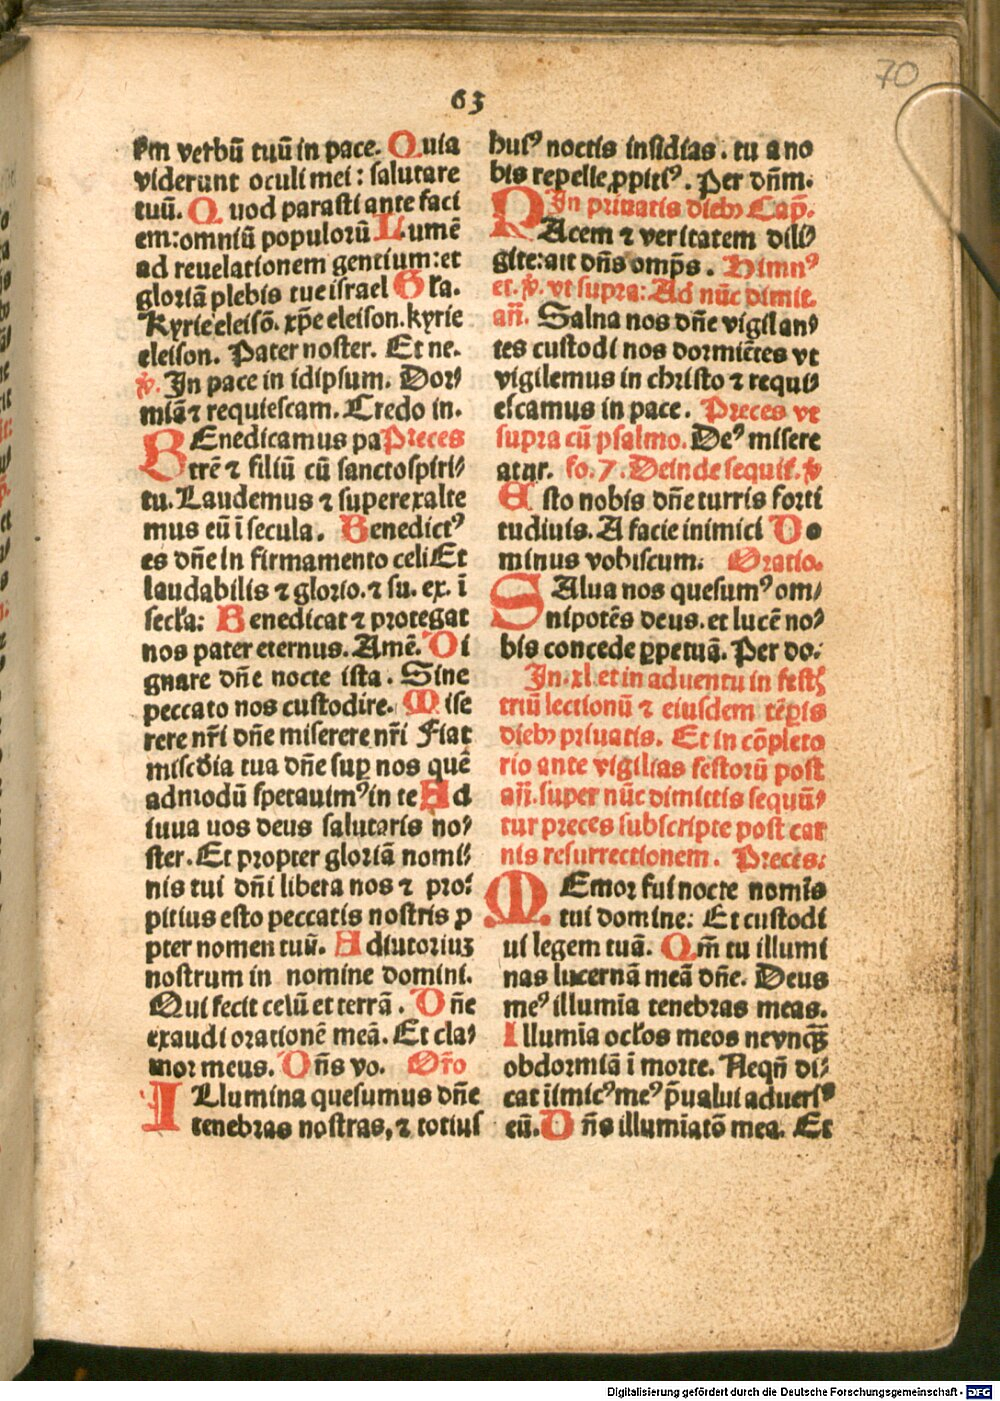 70
63
ẜm verbū tuū in pace. Quia
viderunt oculi mei: salutare
tuū. Quod parasti ante faci
em: omniū populorū Lumē
ad reuelationem gentium: et
gloriā plebis tue israel Gľa.
Kyrie eleisō. xp̄e eleison. kyrie
eleison. Pater noster. Et ne.
℣. In pace in idipsum. Dor⸗
miā ⁊ requiescam. Credo in.
BEnedicamus pa Preces
trē ⁊ filiū cū sancto spiri⸗
tu. Laudemus ⁊ superexalte
mus eū ī secula. Benedictꝰ
es dn̄e in firmamento celi Et
laudabilis ⁊ glorio. ⁊ su. ex. ī
secľa: Benedicat ⁊ protegat
nos pater eternus. Amē. Di
gnare dn̄e nocte ista. Sine
peccato nos custodire. Mise
rere nr̄i dn̄e miserere nr̄i Fiat
miscďia tua dn̄e suꝑ nos quē
admodū sperauimꝰ in te Ad
iuua uos deus salutaris no⸗
ster. Et propter gloriā nomi⸗
nis tui dn̄i libera nos ⁊ pro⸗
pitius esto peccatis nostris ꝓ
pter nomen tuū. Adiutoriuʒ
nostrum in nomine domini.
Qui fecit celū et terrā. Dn̄e
exaudi orationē meā. Et cla⸗
mor meus. Dn̄s vo. Or̄o
ILlumina quesumus dn̄e
tenebras nostras, ⁊ totius
husꝰ noctis insidias. tu a no
bis repelle ꝓpitiꝰ. Per dn̄m.
In priuatis diebꝫ Cap̄.
PAcem ⁊ veritatem dili⸗
gite: ait dn̄s omp̄s. Himnꝰ
et. ℣. vt supra: Ad nūc dimit.
an̄. Salna nos dn̄e vigilan⸗
tes custodi nos dormiētes vt
vigilemus in christo ⁊ requi⸗
escamus in pace. Preces vt
supra cū psalmo. Deꝰ misere
atur. fo. 7. Deinde sequit᷑. ℣
Esto nobis dn̄e turris forti
tudinis. A facie inimici Do
minus vobiscum: Oratio.
SAlua nos quesumꝰ om⸗
nipotēs deus. et lucē no⸗
bis concede ꝑpetuā. Per do.
In. xl. et in aduentu in festꝭ
triū lectionū ⁊ eiusdem tēꝑis
diebꝫ priuatis. Et in cōpleto
rio ante vigilias festorū post
an̄. super nūc dimittis sequū⸗
tur preces subscripte post car
nis resurrectionem. Preces:
MEmor fui nocte nomīs
tui domine: Et custodi
ui legem tuā. Qm̄ tu illumi
nas lucernā meā dn̄e. Deus
meꝰ illumīa tenebras meas.
Illumīa ocľos meos ne vnqȝ̄
obdormiā ī morte. Neqn̄ di⸗
cat īimicꝰ meꝰ p̄ualui aduersꝰ
eū. Dn̄s illumiatō mea. Et
Digitalisierung gefördert durch die Deutsche Forschungsgemeinschaft - DFG